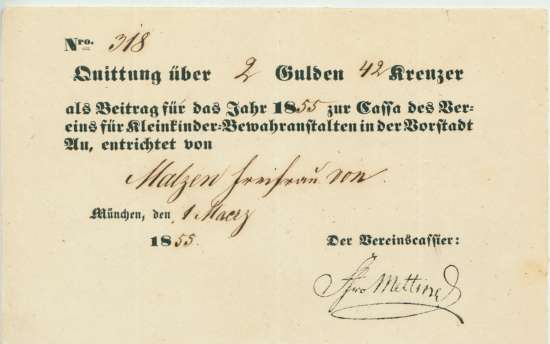 Nro. 318
Quittung über 2 Gulden 42 Kreuzer
als Beitrag für das Jahr 1855 zur Cassa des Ver=
eins für Kleinkinder=Bewahranstalten in der Vorstadt
Au, entrichtet von
Malzen Freifrau von.
München, den 1 Maerz
1855.
Der Vereinscassier: